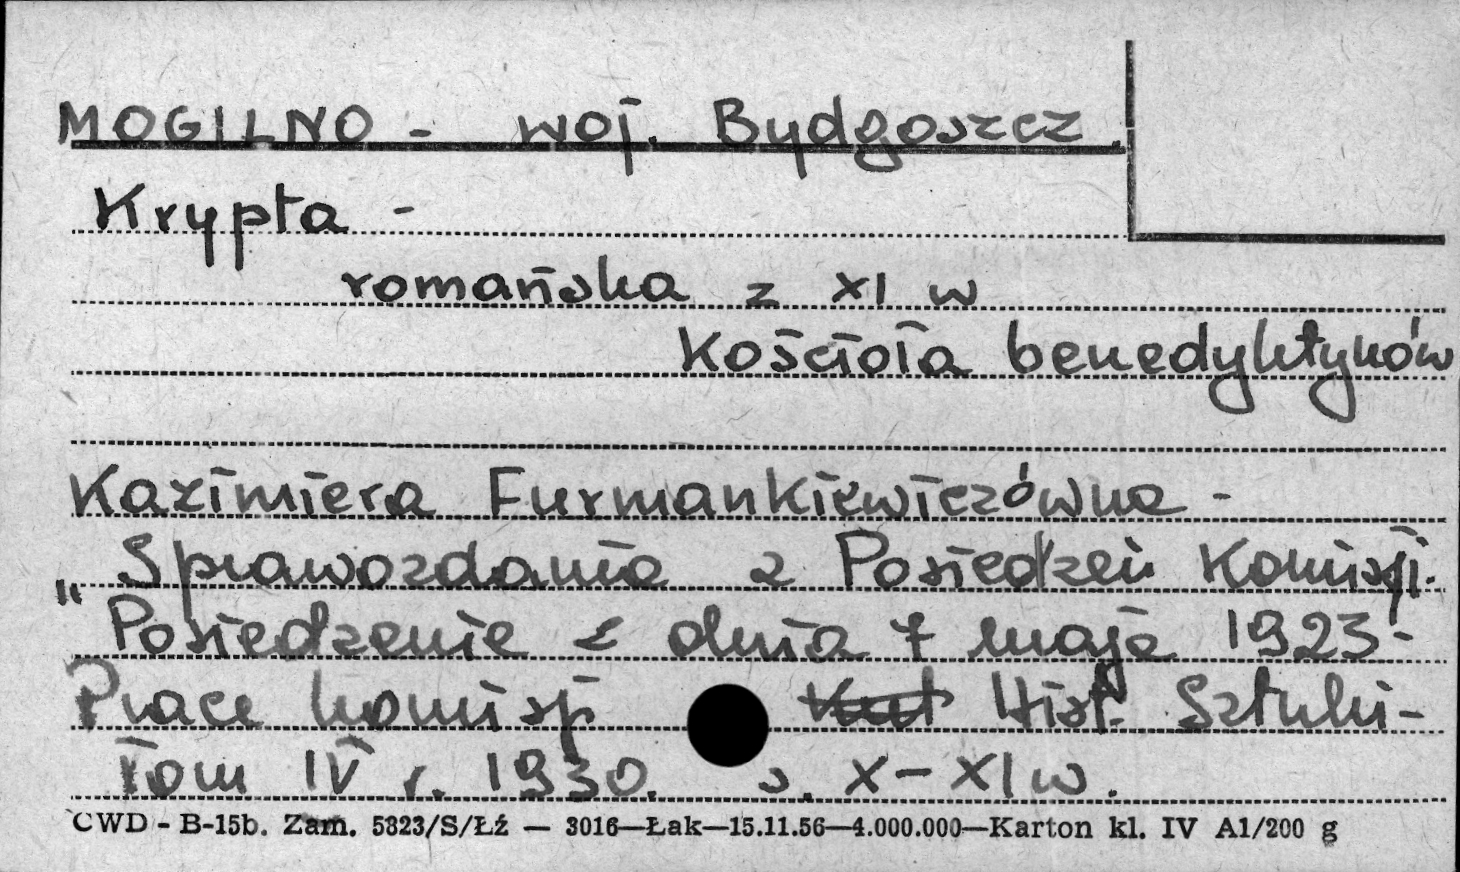 MOGILNO - woj. Bydgoszcz.
Krypta -
romańska z XI w
Kościoła benedyktynów
Kazimiera Furmankiewiczówna -
Sprawozdania z Posiedzeń Komisji.
"Posiedzenie z dnia 7 maja 1923 -
Prace komisji Hist. Sztuki -
Tom IV r. 1930. s. X - XI w.
CWD - B-15b. Zam. 5323/S/Łź — 3016—Łak—15.11.56—4.000.000—Karton kl. IV A1/200 g